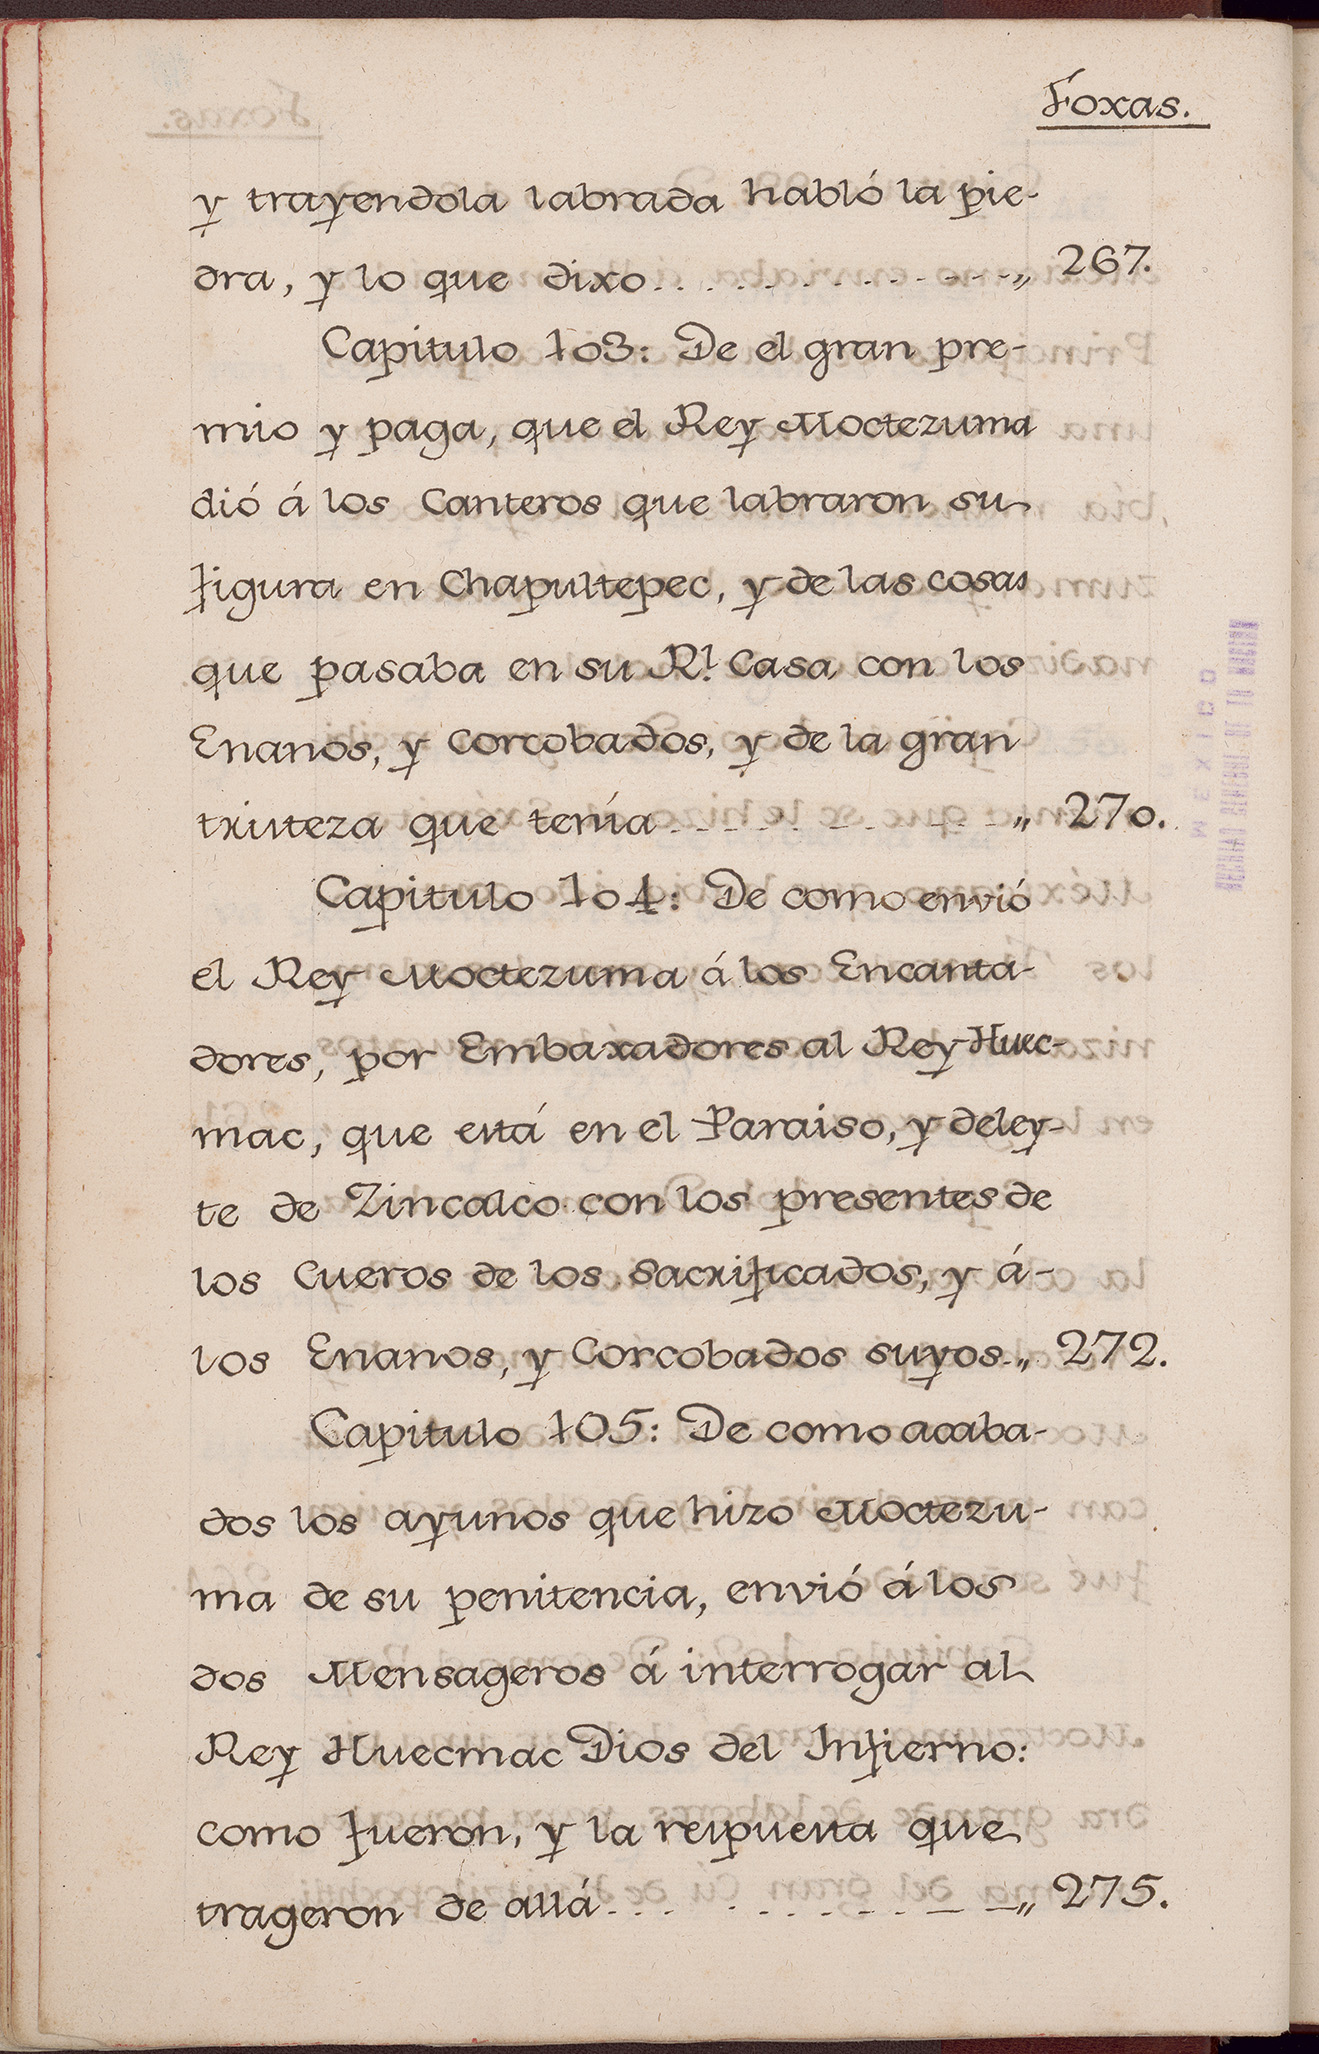 Foxas.
y trayendola labrada habló la pie-
dra, y lo que dixo. . . . . . . . . . . . . „ 267.
Capitulo 103: De el gran pre-
mio y paga, que el Rey Moctezuma
dió á los Canteros que labraron su
figura en Chapultepec, y de las cosas
que pasaba en su Rl. Casa con los
Enanos, y Corcobados, y de la gran
tristeza que tenía . . . . . . . . . . . . „ 270.
Capitulo 104: De como envió
el Rey Moctezuma á los Encanta-
dores, por Embaxadores al Rey Huec-
mac, que está en el Paraiso, y deley-
te de Zincalco con los presentes de
los Cueros de los Sacrificados, y á-
los Enanos, y Corcobados suyos. „ 272.
Capitulo 105: De como acaba-
dos los ayunos que hizo Moctezu-
ma de su penitencia, envió á los
dos Mensageros á interrogar al
Rey Huecmac Dios del Infierno:
como fueron, y la respuesta que
trageron de allá . . . . . . . . . . . . „ 275.